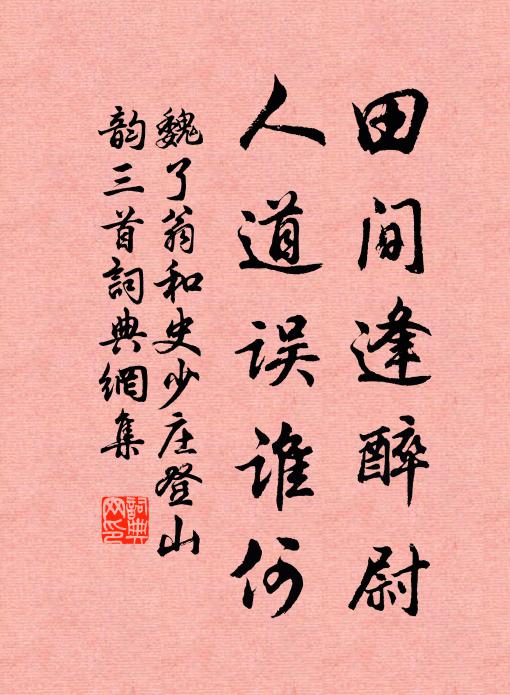 田间逢醉尉
人道误谁何
魏了翁和史少庄登山
韵三首詞典網集
詞典网印